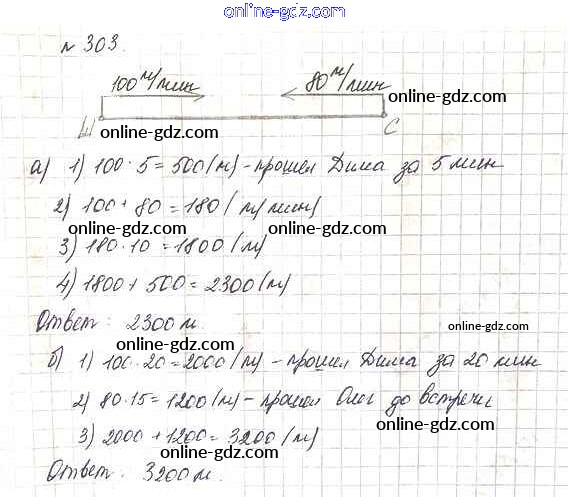 online-gdz.com
№ 303.
100 м/мин 80 м/мин
online-gdz.com
Ш С
online-gdz.com
а) 1) 100 · 5 = 500 (м) - прошел Дима за 5 мин
online-gdz.com
2) 100 + 80 = 180 (м/мин)
online-gdz.com
3) 180 · 10 = 1800 (м)
online-gdz.com
4) 1800 + 500 = 2300 (м)
Ответ: 2300 м.
online-gdz.com
online-gdz.com
б) 1) 100 · 20 = 2000 (м) - прошел Дима за 20 мин
2) 80 · 15 = 1200 (м) - прошел Олег до встречи
online-gdz.com
3) 2000 + 1200 = 3200 (м)
online-gdz.com
Ответ: 3200 м.
online-gdz.com